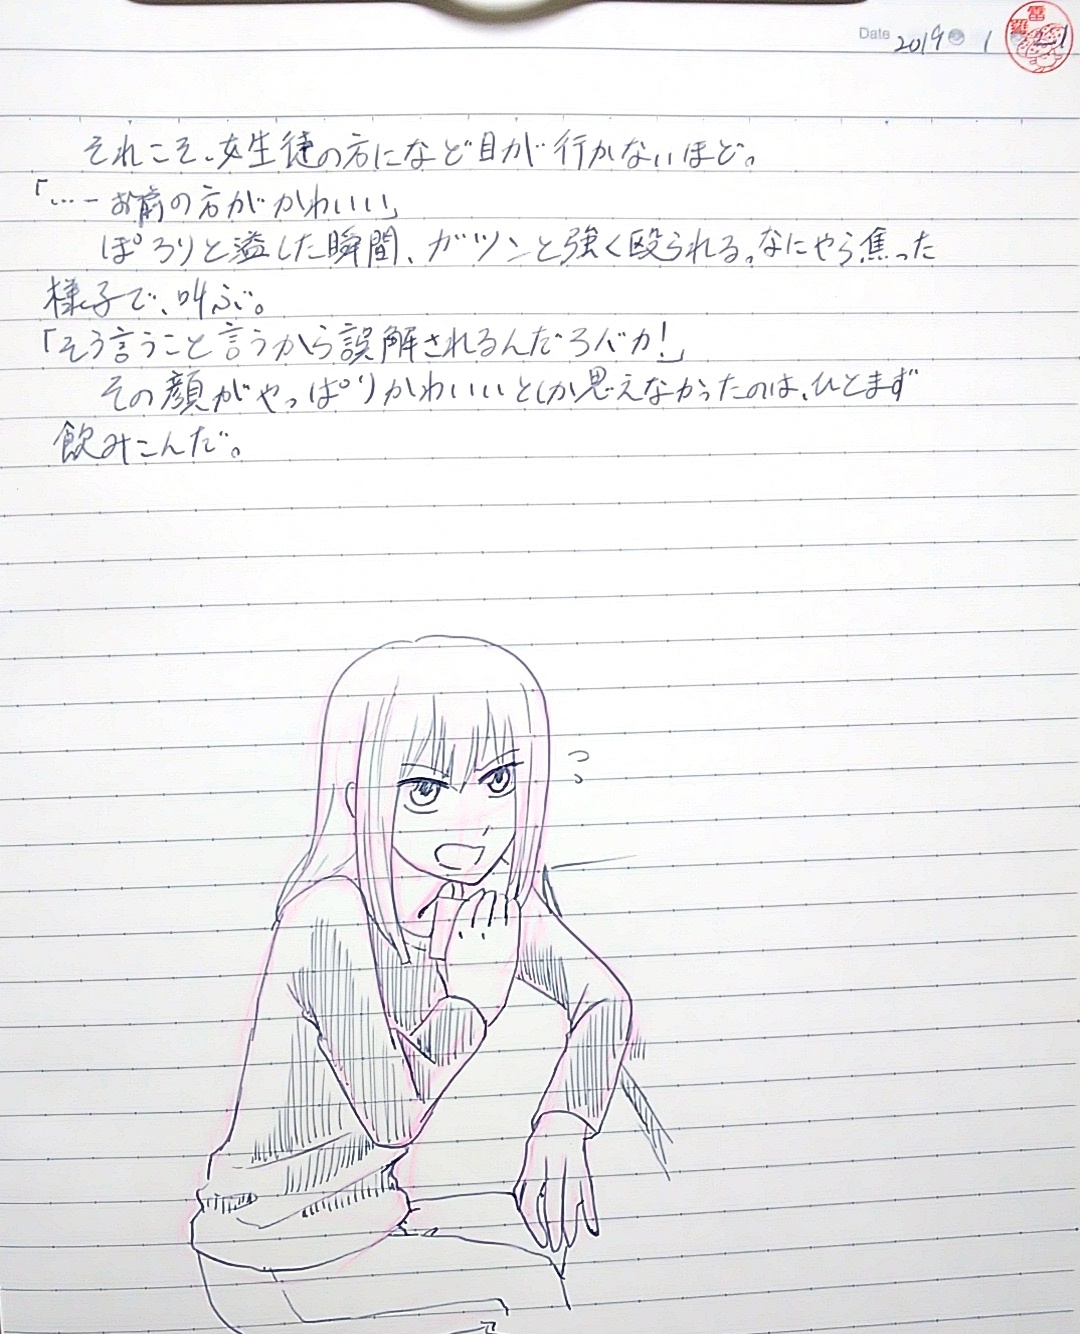 Date 2019 1
それこそ、女生徒の方になど目が行かないほど。
「…お前の方がかわいい」
ぽろりと溢した瞬間、ガツンと強く殴られる。なにやら焦った
様子で、叫ぶ。
「そう言うこと言うから誤解されるんだろバカ!」
その顔がやっぱりかわいいとしか思えなかったのは、ひとまず
飲みこんだ。